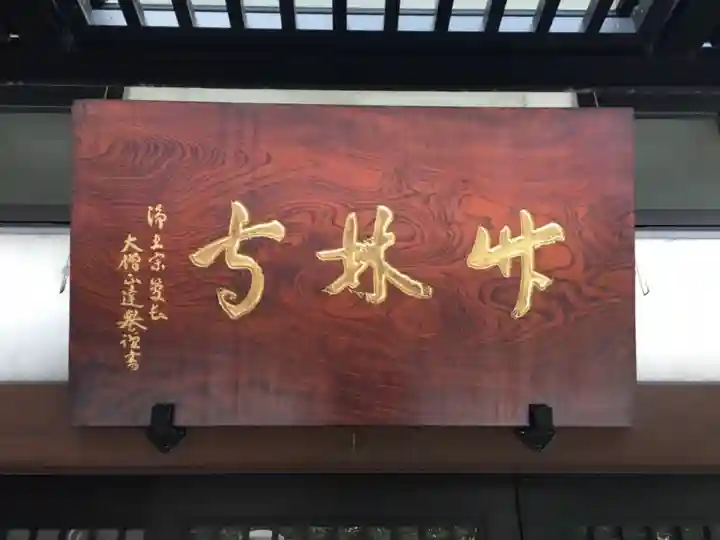 竹林寺
浄土宗管長
大僧正達譽謹書